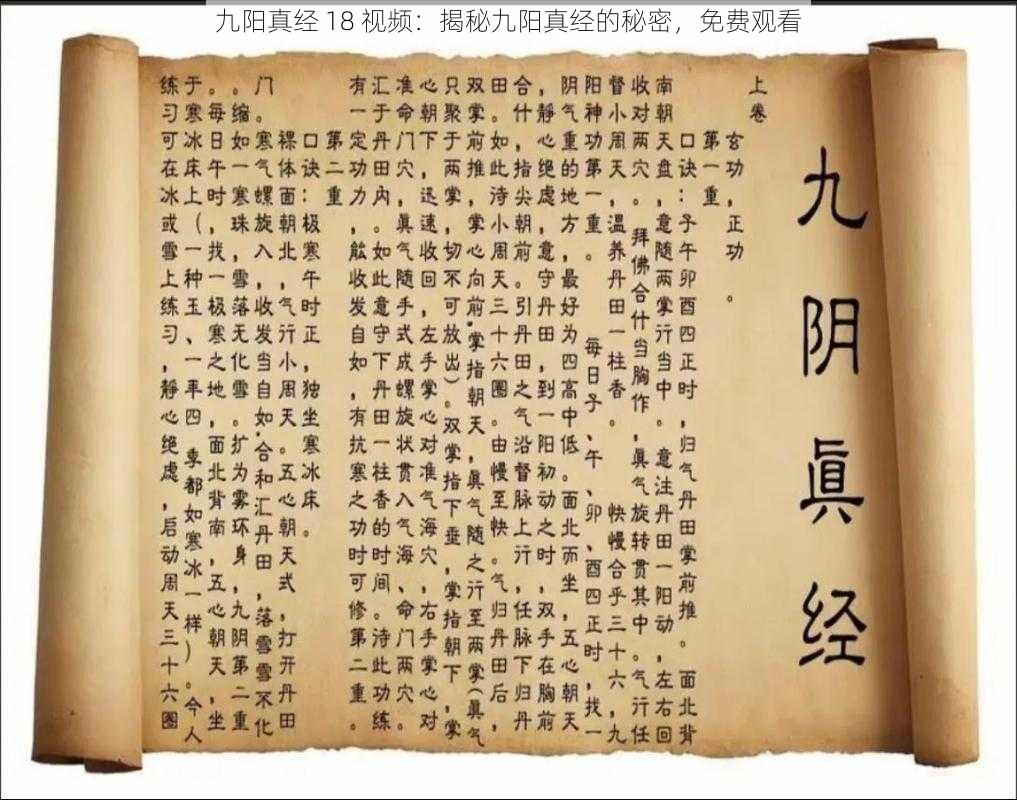 九阳真经 18 视频：揭秘九阳真经的秘密，免费观看
九阴眞经
上卷
玄功，正功。
第一重，
口诀：子午卯酉四正时，归气丹田掌前推。面北背
南朝天盘，意随两掌行当中。意注丹田一阳动，左右回
收对两穴。，拜佛合什当胸作，眞气旋转贯其中。气行任
督小周天，温养丹田一柱香。快慢合乎三十六，九
阳神功第一重。每日子、午、卯、酉四正时，找一
阴气重的地方，最好为四高中低。面北而坐，五心朝天
，静心绝虑，意守丹田，到一阳初动之时，双手在胸前
合什，指尖朝前。引丹田之气沿督脉上行，任脉下归丹
田。如此待小周天三十六圈。由慢至快。气归丹田后，
双掌前推，掌心向前，掌指朝天，眞气随之行至两掌(眞气
只聚于两掌，切不可放出)。双掌指下垂，掌指朝下，掌
心朝下，迅速收回，左手掌心对准气海穴，右手掌心对
准命门穴，眞气随手式成螺旋状贯入气海、命门两穴。
汇于丹田内。如此意守下丹田一柱香的时间。待此功练
有一定功力，能收发自如，有抗寒之功时可修第二重。
第二重
口诀：极寒午时正，独坐寒冰床。
裸体面朝北，气行小周天。五心朝天式，打开丹田
门。寒气螺旋入，收发当自如.合和汇丹田，落雪雪不化
。缩如一寒珠，雪落无化雪。扩为雾环身，九阴第二重
。每日午时，找一极寒之地，面北背南，五心朝天，坐
于寒冰床上(一种玉、一年四季都如寒冰一样)。今人
练习可在冰或雪上练习，静心绝虑，启动周天三十六圈